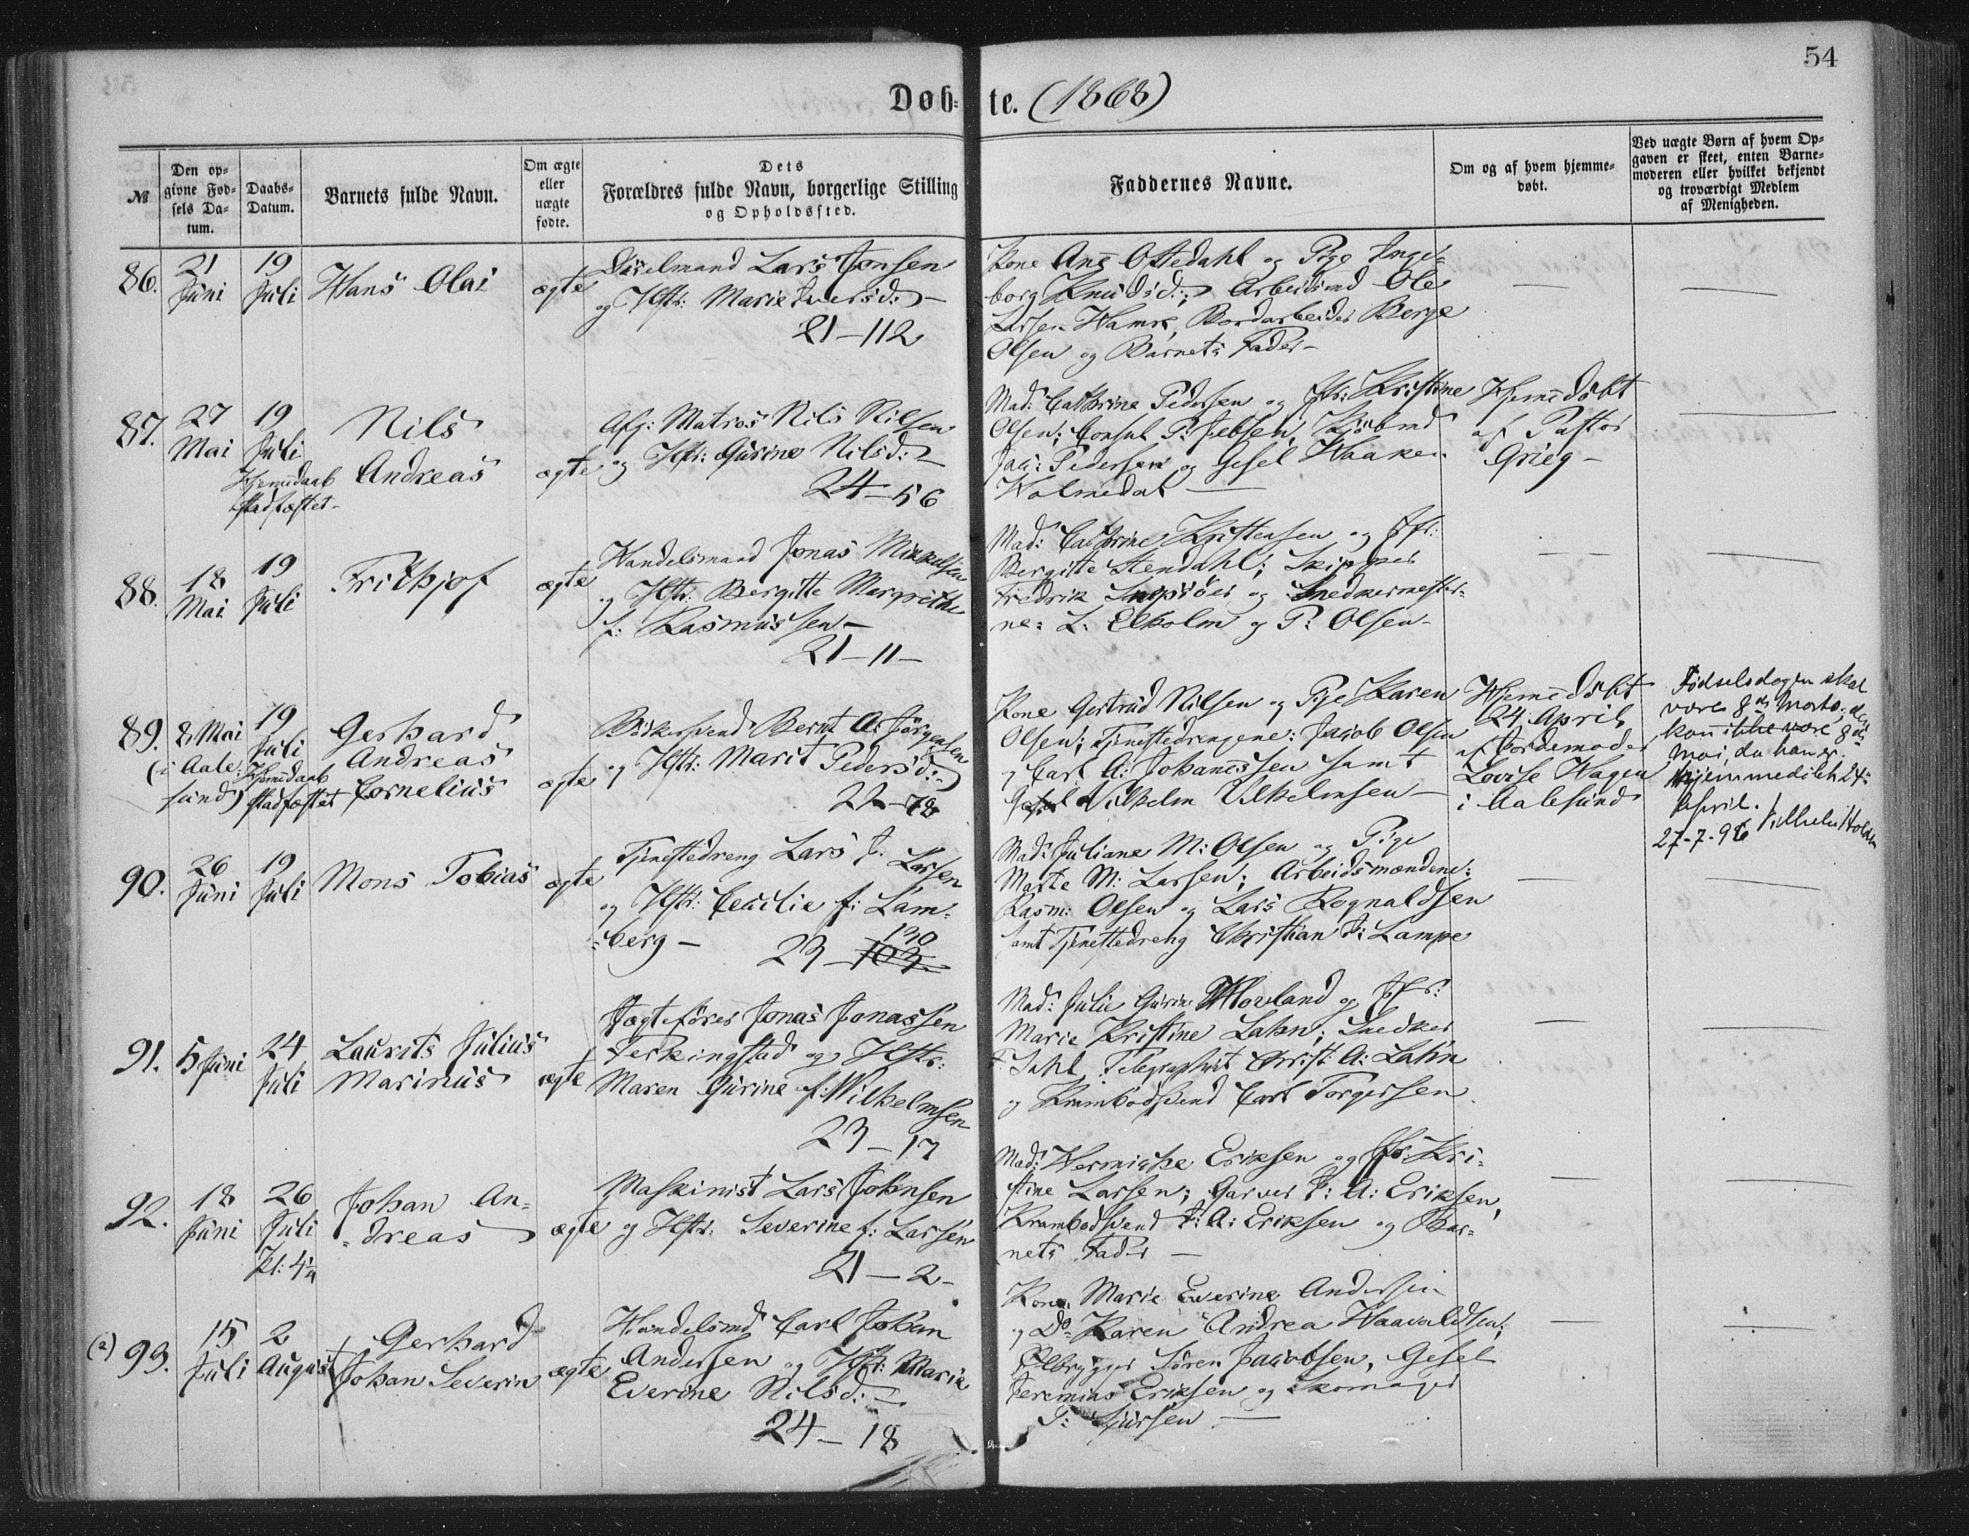 54
Døb-te. (1868)
№
Den op-
givne Fød-
sels Da-
tum.
Daabs-
Datum.
Barnets fulde Navn.
Om ægte
eller
uægte
fødte.
Dets
Forældres fulde Navn, borgerlige Stilling
og Opholdssted.
Faddernes Navne.
Om og af hvem hjemme-
døbt.
Ved uægte Børn af hvem Op-
gaven er skeet, enten Barne-
moderen eller hvilket bekjendt
og troværdigt Medlem
af Menigheden.
86.
21
Juni
19
Juli
Hans Olai
ægte
Lars Jonsen
og Hstr: Marie Iversd: –
21–112
Kone Ane Oftedahl og Pige Inge-
borg Knudsd:; Arbeidsmd Ole
Larsen Hamre, Bordarbeider Berge
Olsen og Barnets Fader –
87.
27
Mai
19
Juli
Hjemedaab
stadfæstet –
Nils
Andreas
ægte
Afg: Matros Nils Nilsen
og Hstr: Gurine Nilsd: –
24–56
Mad: Cathrine Pedersen og Jfr: Kristine
Olsen; Consul P: Jebsen, Kjøbmd
Jac: Pedersen og Gesel Haaken
Holmedal –
Hjemedøbt
af Pastor
Grieg –
88.
18
Mai
19
Juli
Frithjof
ægte
Handelsmand Jonas Mikkelsen
og Hstr: Bergitte Margrethe
f: Rasmussen –
21–11–
Mad: Cathrine Kristensen og Jfr:
Bergitte Stendahl; Skipper
Fredrik og Snedkermester-
ne: L. Ekholm og P: Olsen –
89.
8 Mai
(i Aale-
sund)
19
Juli
Hjemedaab
stadfæstet
Gerhard
Andreas
Cornelius
ægte
Bernt A: Jørgensen
og Hstr: Marit Pedersd: –
22–78
Kone Gertrud Nilsen og Pige Karen
Olsen; Tjenestedrengene: Jacob Olsen
og Carl A: Johanessen samt
Gesel Vilhelm Vilhelmsen –
Hjemedøbt
24 April
af Jordemoder
Lovise Hagen
i Aalesund
Fødselsdagen skal
være 8de Marts; den
kan ikke være 8de
Mai, da han er
hjemmedöbt 24de
April.
27-7-96 Vilhelm Hold
90.
26
Juni
19
Juli
Mons Tobias
ægte
Tjenestedreng Lars J. Larsen
og Hstr: Cecilie f: Lam-
berg –
130
23–103
Mad: Juliane M: Olsen og Pige
Marte M: Larsen; Arbeidsmændene:
Rasm: Olsen og Lars Rognaldsen
samt Tjenestedreng Christian J: Lampe
91.
5 Juni
24
Juli
Laurits Julius
Marinus
ægte
Jægtefører Jonas Jonassen
Ferkingstad og Hstr:
Maren Gurine f: Wilhelmsen
23–17
Mad: Julie Gurine Hovland og Jfr:
Marie Kristine Lahn; Snedker
Dahl, Telegraphist Christ: A: Lahn
og Krambodsvend Carl Torgersen.
92.
18
Juni
26
Juli
Kl: 4¼
Johan An-
dreas
ægte
Maskinist Lars Johnsen
og Hstr: Severine f: Larsen
21–2–
Mad: Hermiche Eriksen og Jfr: Kri-
stine Larsen; Garver J: A: Eriksen,
Krambodsvend J: A: Eriksen og Bar-
nets Fader –
(2) 93.
15
Juli
2
August
Gerhard
Johan Severin
ægte
Handelsmd Carl Johan
Andersen og Hstr: Marie
Everine Nilsd: –
24–18
Kone Marie Everine Andersen
og Do Karen Andrea Haavaldsen;
Ølbrygger Søren Jacobsen, Gesel
Jeremias Eriksen og Skomager
T: Sjursen –